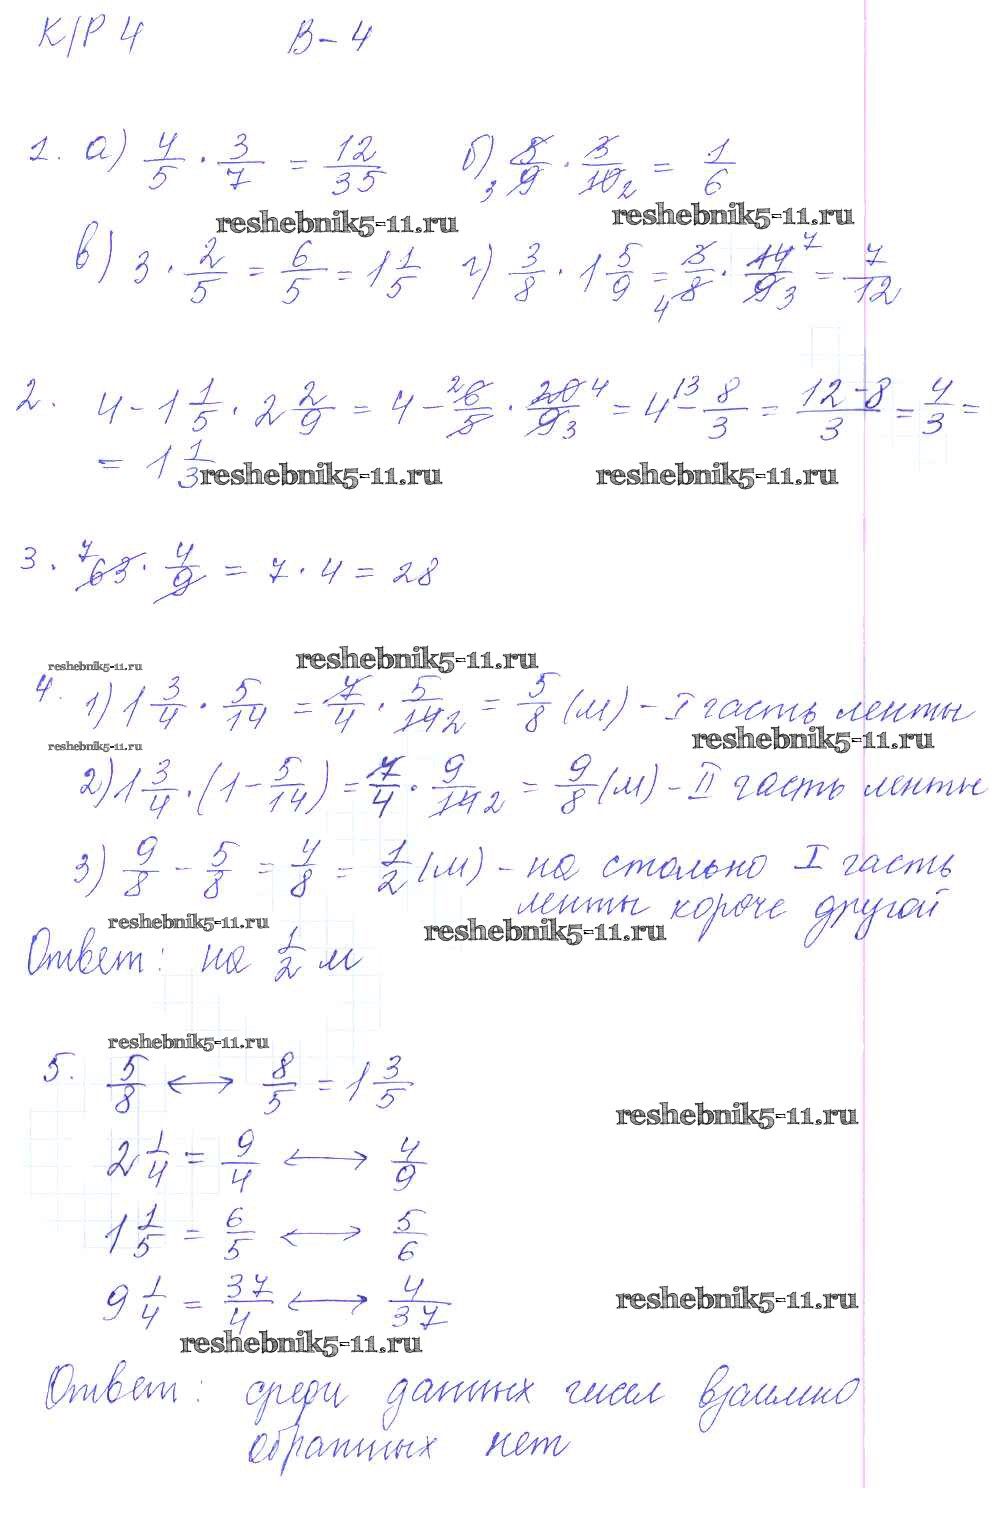 К/Р 4 В-4
1. а) 4/5 · 3/7 = 12/35 б) 3 5/9 · 3/10 2 = 1/6
reshebnik5-11.ru reshebnik5-11.ru
в) 3 · 2/5 = 6/5 = 1 1/5 г) 3/8 · 1 5/9 = 4 3/8 · 14/9 7 3 = 7/12
2. 4 - 1 1/5 · 2 2/9 = 4 - 2 6/5 · 20/9 4 3 = 4 \3 - 8/3 = 12-8/3 = 4/3 =
= 1 1/3
reshebnik5-11.ru reshebnik5-11.ru
3. 7 63 · 4/9 = 7 · 4 = 28
reshebnik5-11.ru reshebnik5-11.ru
4. 1) 1 3/4 · 5/14 = 7/4 · 5/14 2 = 5/8 (м) - I часть ленты
reshebnik5-11.ru reshebnik5-11.ru
2) 1 3/4 · (1 - 5/14) = 7/4 · 9/14 2 = 9/8 (м) - II часть ленты
3) 9/8 - 5/8 = 4/8 = 1/2 (м) - на столько I часть
ленты короче другой
reshebnik5-11.ru reshebnik5-11.ru
Ответ: на 1/2 м
reshebnik5-11.ru
5. 5/8 ↔ 8/5 = 1 3/5
reshebnik5-11.ru
2 1/4 = 9/4 ↔ 4/9
1 1/5 = 6/5 ↔ 5/6
9 1/4 = 37/4 ↔ 4/37
reshebnik5-11.ru
reshebnik5-11.ru
Ответ: среди данных чисел взаимно
обратных нет